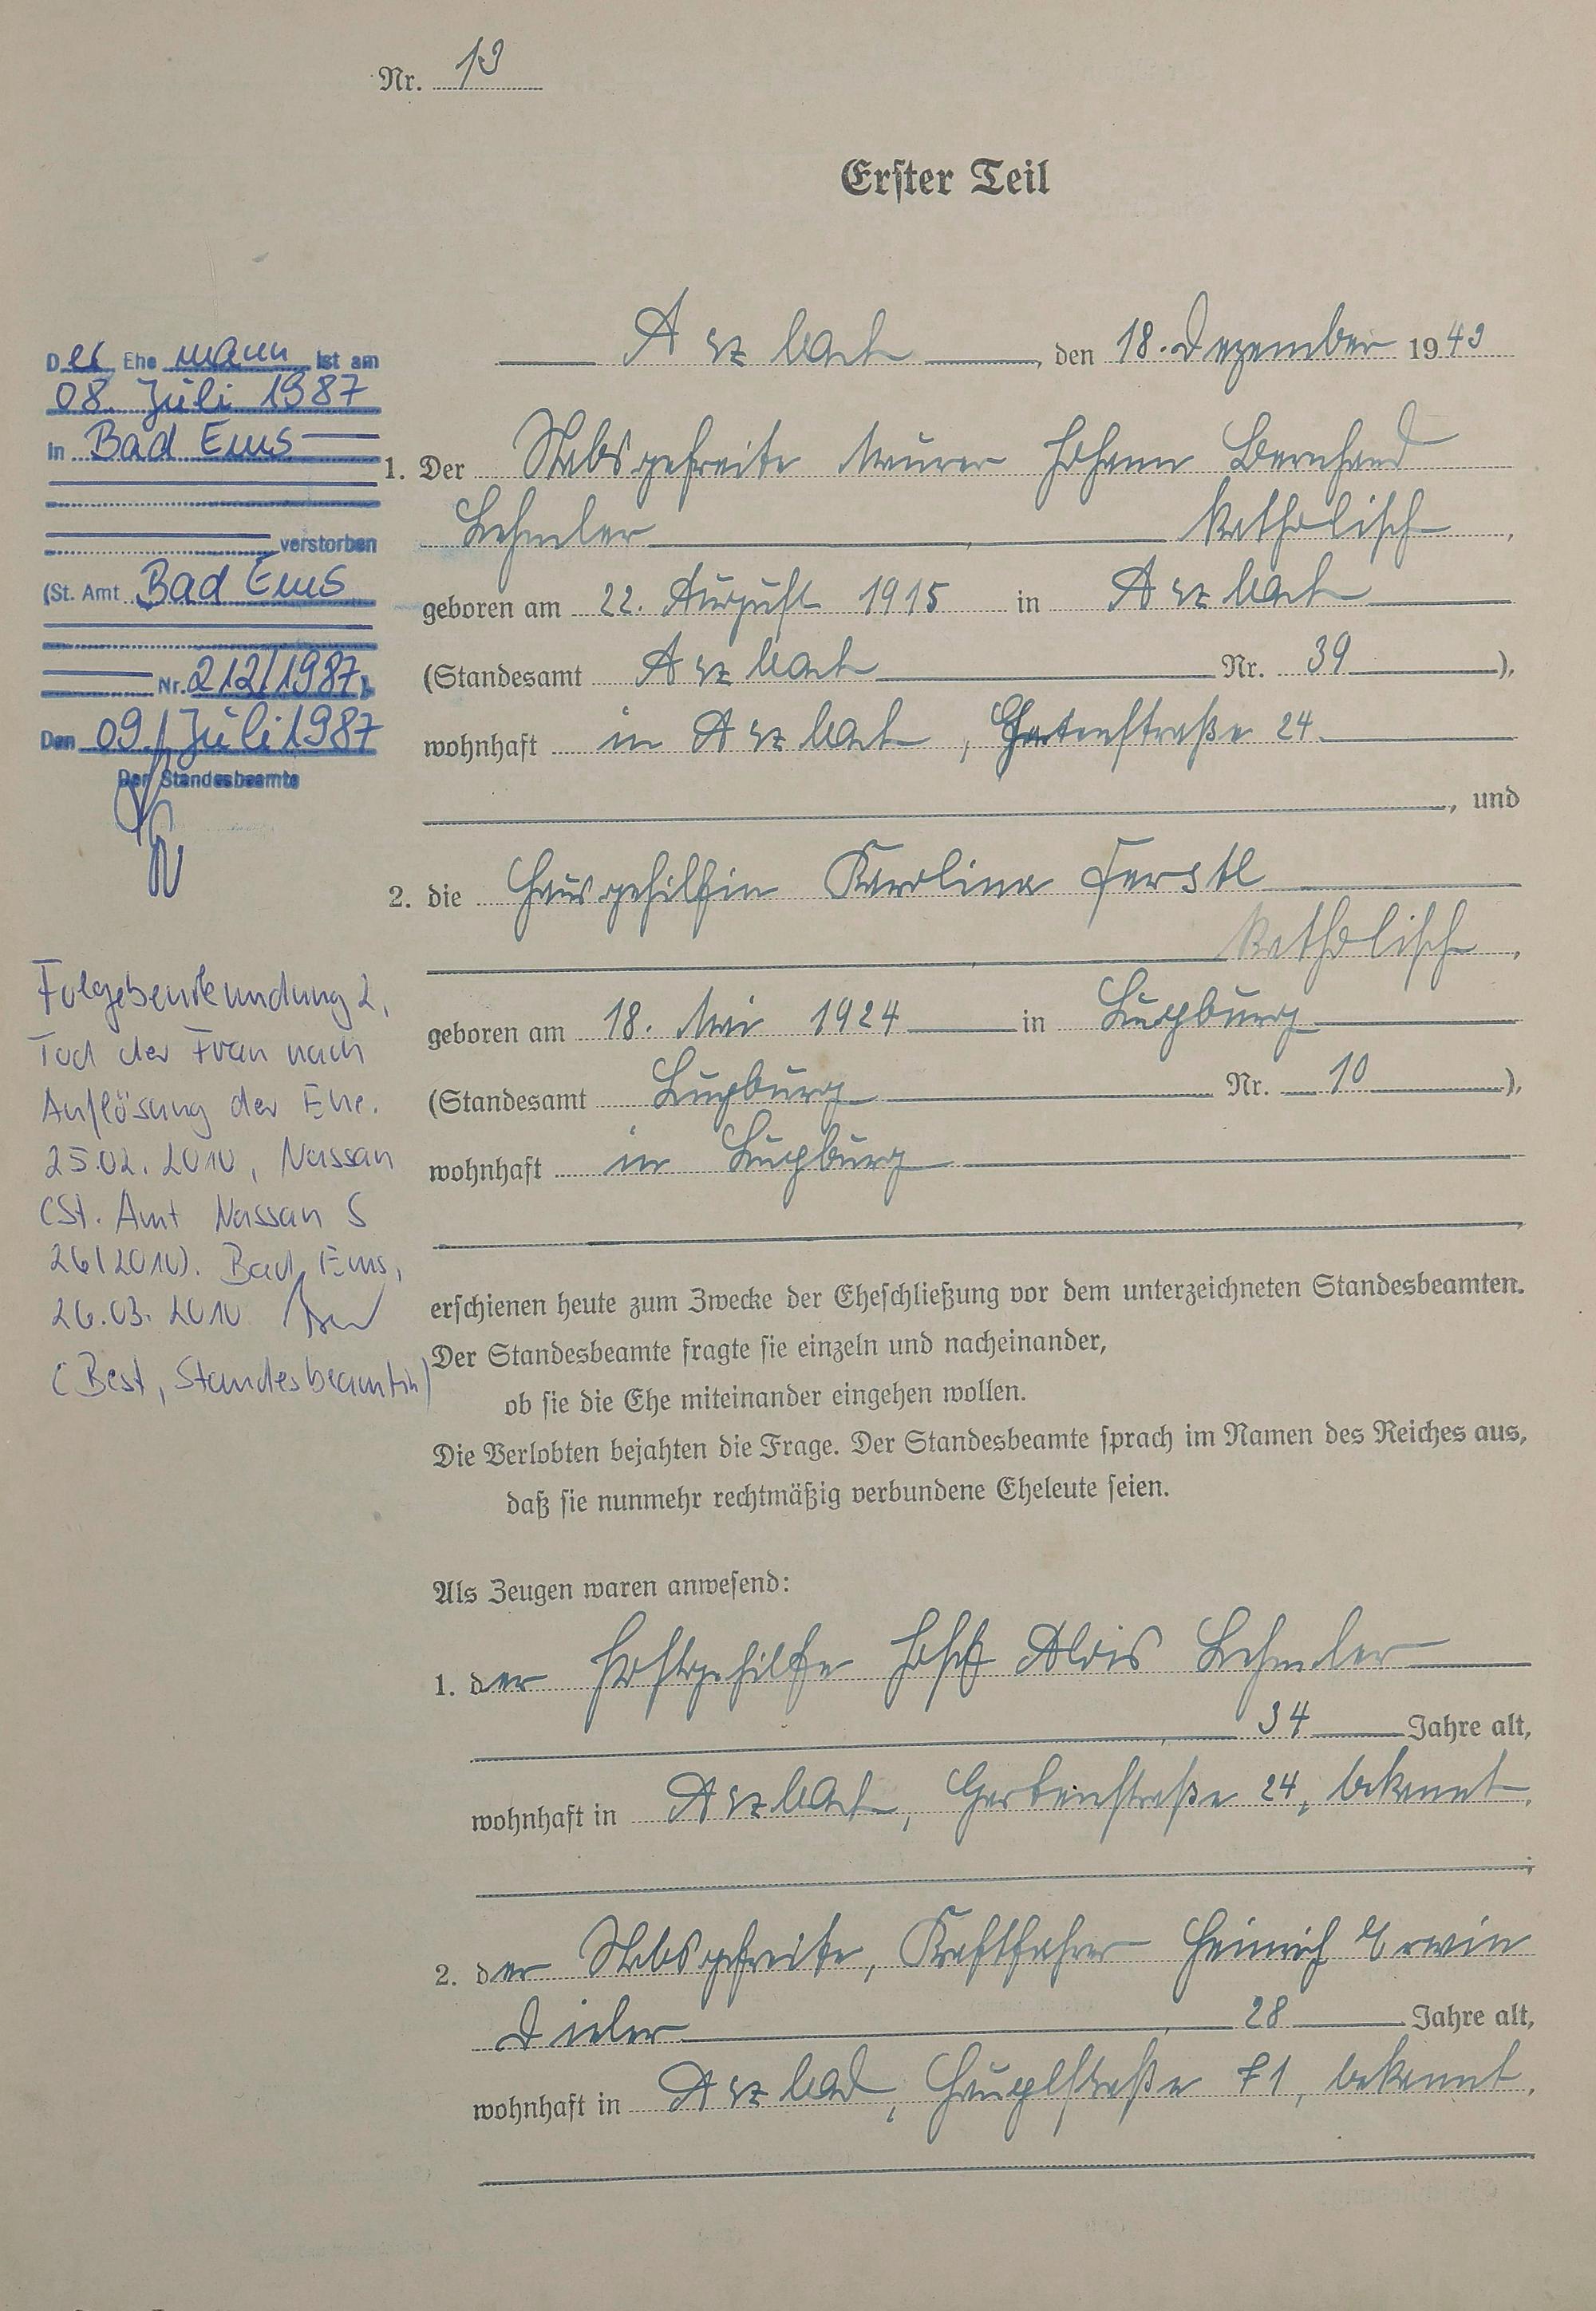 Nr. 13
Erster Teil
Arzbach, den 18. Dezember 1943
1. Der Stabsgefreite Maurer Johann Bernhard
Lehmler, katholisch,
geboren am 22. August 1915 in Arzbach
(Standesamt Arzbach Nr. 39),
wohnhaft in Arzbach, Gartenstraße 24
, und
2. die Hausgehilfin Karolina Ferstl
, katholisch,
geboren am 18. Mai 1924 in
(Standesamt Nr. 10),
wohnhaft in
erschienen heute zum Zwecke der Eheschließung vor dem unterzeichneten Standesbeamten.
Der Standesbeamte fragte sie einzeln und nacheinander,
ob sie die Ehe miteinander eingehen wollen.
Die Verlobten bejahten die Frage. Der Standesbeamte sprach im Namen des Reiches aus,
daß sie nunmehr rechtmäßig verbundene Eheleute seien.
Als Zeugen waren anwesend:
1. der Josef Alois Lehmler
, 34 Jahre alt,
wohnhaft in Arzbach, Gartenstraße 24, bekannt,
;
2. der Stabsgefreite, Kraftfahrer Heinrich Erwin
, 28 Jahre alt,
wohnhaft in Arzbach, Hauptstraße 71, bekannt.
Der Ehemann ist am
08. Juli 1987
in Bad Ems
verstorben
(St. Amt Bad Ems
Nr. 212/1987).
Den 09. Juli 1987
Der Standesbeamte
Folgebeurkundung 2,
Tod der Frau nach
Auflösung der Ehe.
25.02.2010, Nassau
(St. Amt Nassau S
26/2010). Bad Ems,
26.03.2010
(Best, Standesbeamtin)